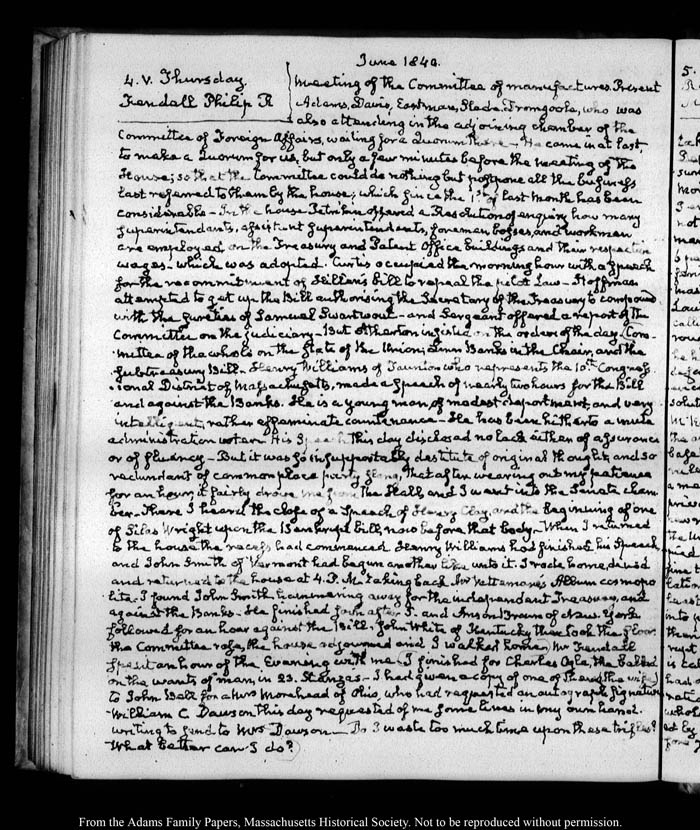 June 1840.
4. V. Thursday
Kendall Philip R
Meeting of the Committee of manufactures. Present
Adams, Davis, Eastman, Slade. Tromgoole, who was
also attending in the adjoining chamber of the
Committee of Foreign Affairs, waiting for a Quorum there — He came in at last
to make a Quorum for us, but only a few minutes before the meeting of the
House; so that the Committee could do nothing but postpone all the business
last referred to them by the house; which since the 1st of last Month has been
considerable — In the house Petrikin offered a Resolution of enquiry how many
superintendants, assistant superintendents, foremen bosses, and workmen
are employed, on the Treasury and Patent Office buildings and their respective
wages. which was adopted. Curtis occupied the morning hour with a speech
for the recommitment of Hillen's bill to repeal the pilot Law — Hoffman
attempted to get up the Bill authorising the Secretary of the Treasury to compound
with the sureties of Samuel Swartwout — and Sergeant offered a report of the
Committee on the judiciary — But Atherton insisted on the orders of the day. Com-
mittee of the whole on the State of the Union; Linn Banks in the Chair, and the
Subtreasury Bill. Henry Williams of Taunton who represents the 10th Congress-
ional District of Massachusetts, made a Speech of nearly two hours for the Bill
and against the Banks. He is a young man, of modest deportment, and very
intelligent, rather effeminate countenance — He has been hitherto a mute
administration voter. His Speech this day disclosed no lack either of assurance
or of fluency — But it was so insupportably destitute of original thought, and so
redundant of common place party slang, that after wearing out my patience
for an hour, it fairly drove me from the Hall, and I went into the Senate cham-
ber. There I heard the close of a Speech of Henry Clay, and the beginning of one
of Silas Wright upon the Bankrupt Bill now before that body. When I returned
to the house the recess had commenced Henry Williams had finished his Speech
and John Smith of Vermont had begun another like unto it. I rode home, dined
and returned to the house at 4. P.M. taking back Mr Vattemare's Album cosmopo
lite. I found John Smith hammering away for the independent Treasury, and
against the Banks. He finished soon after 5. and Anson Brown of New York
followed for an hour against the Bill. John White of Kentucky then took the floor.
the Committee rose, the house adjourned and I walked home. Mr Kendall
spent an hour of the Evening with me. I finished for Charles Ogle, the ballad
on the wants of man, in 23. Stanzas — I had given a copy of one of them (the wife)
to John Bell for a Mrs Morehead of Ohio, who had requested an autograph signature
William C. Dawson this day requested of me some lines in my own hand-
writing to send to Mrs Dawson — Do I waste too much time upon these trifles?
What better can I do?
From the Adams Family Papers, Massachusetts Historical Society. Not to be reproduced without permission.